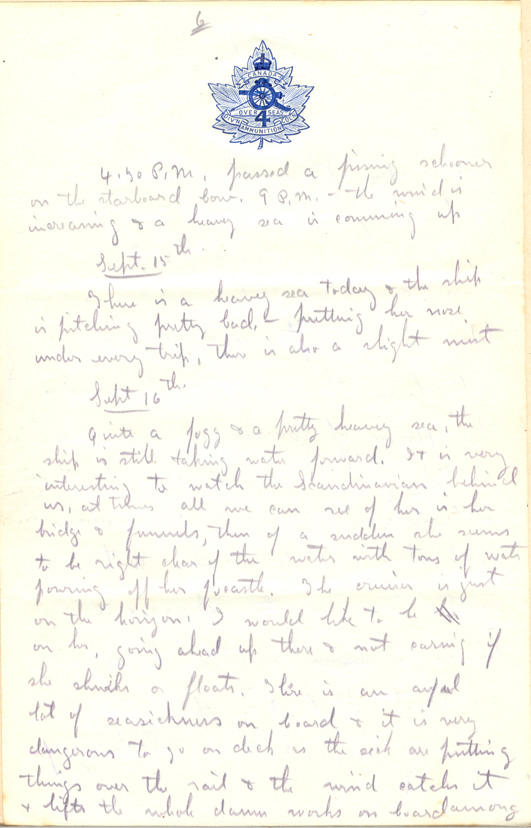 6
CANADA
OVER SEAS
4
DIV'N AMMUNITION COL.
4.30 P.M. passed a fishing schooner
on the starboard bow. 9 P.M. - the wind is
increasing & a heavy sea is comming up
Sept. 15th.
There is a heavey sea today & the ship
is pitching pretty bad, - putting her nose
under every trip, ther is also a slight mist
Sept 16th.
Quite a fogg & a pretty heavey sea, the
ship is still taking water forward. It is very
interesting to watch the Scandinavian behind
us, at times all we can see of her is her
bridge & funnels, then of a sudden she seems
to be right clear of the water with tons of water
pouring off her focastle. The cruiser is just
on the horizon. I would like to be
on her, going ahead up there & not caring if
she shinks or floats. There is an awful
lot of seasickness on board & it is very
dangerous to go on deck as the sick are putting
things over the rail & the wind catches it
& lifts the whole damn works on board among